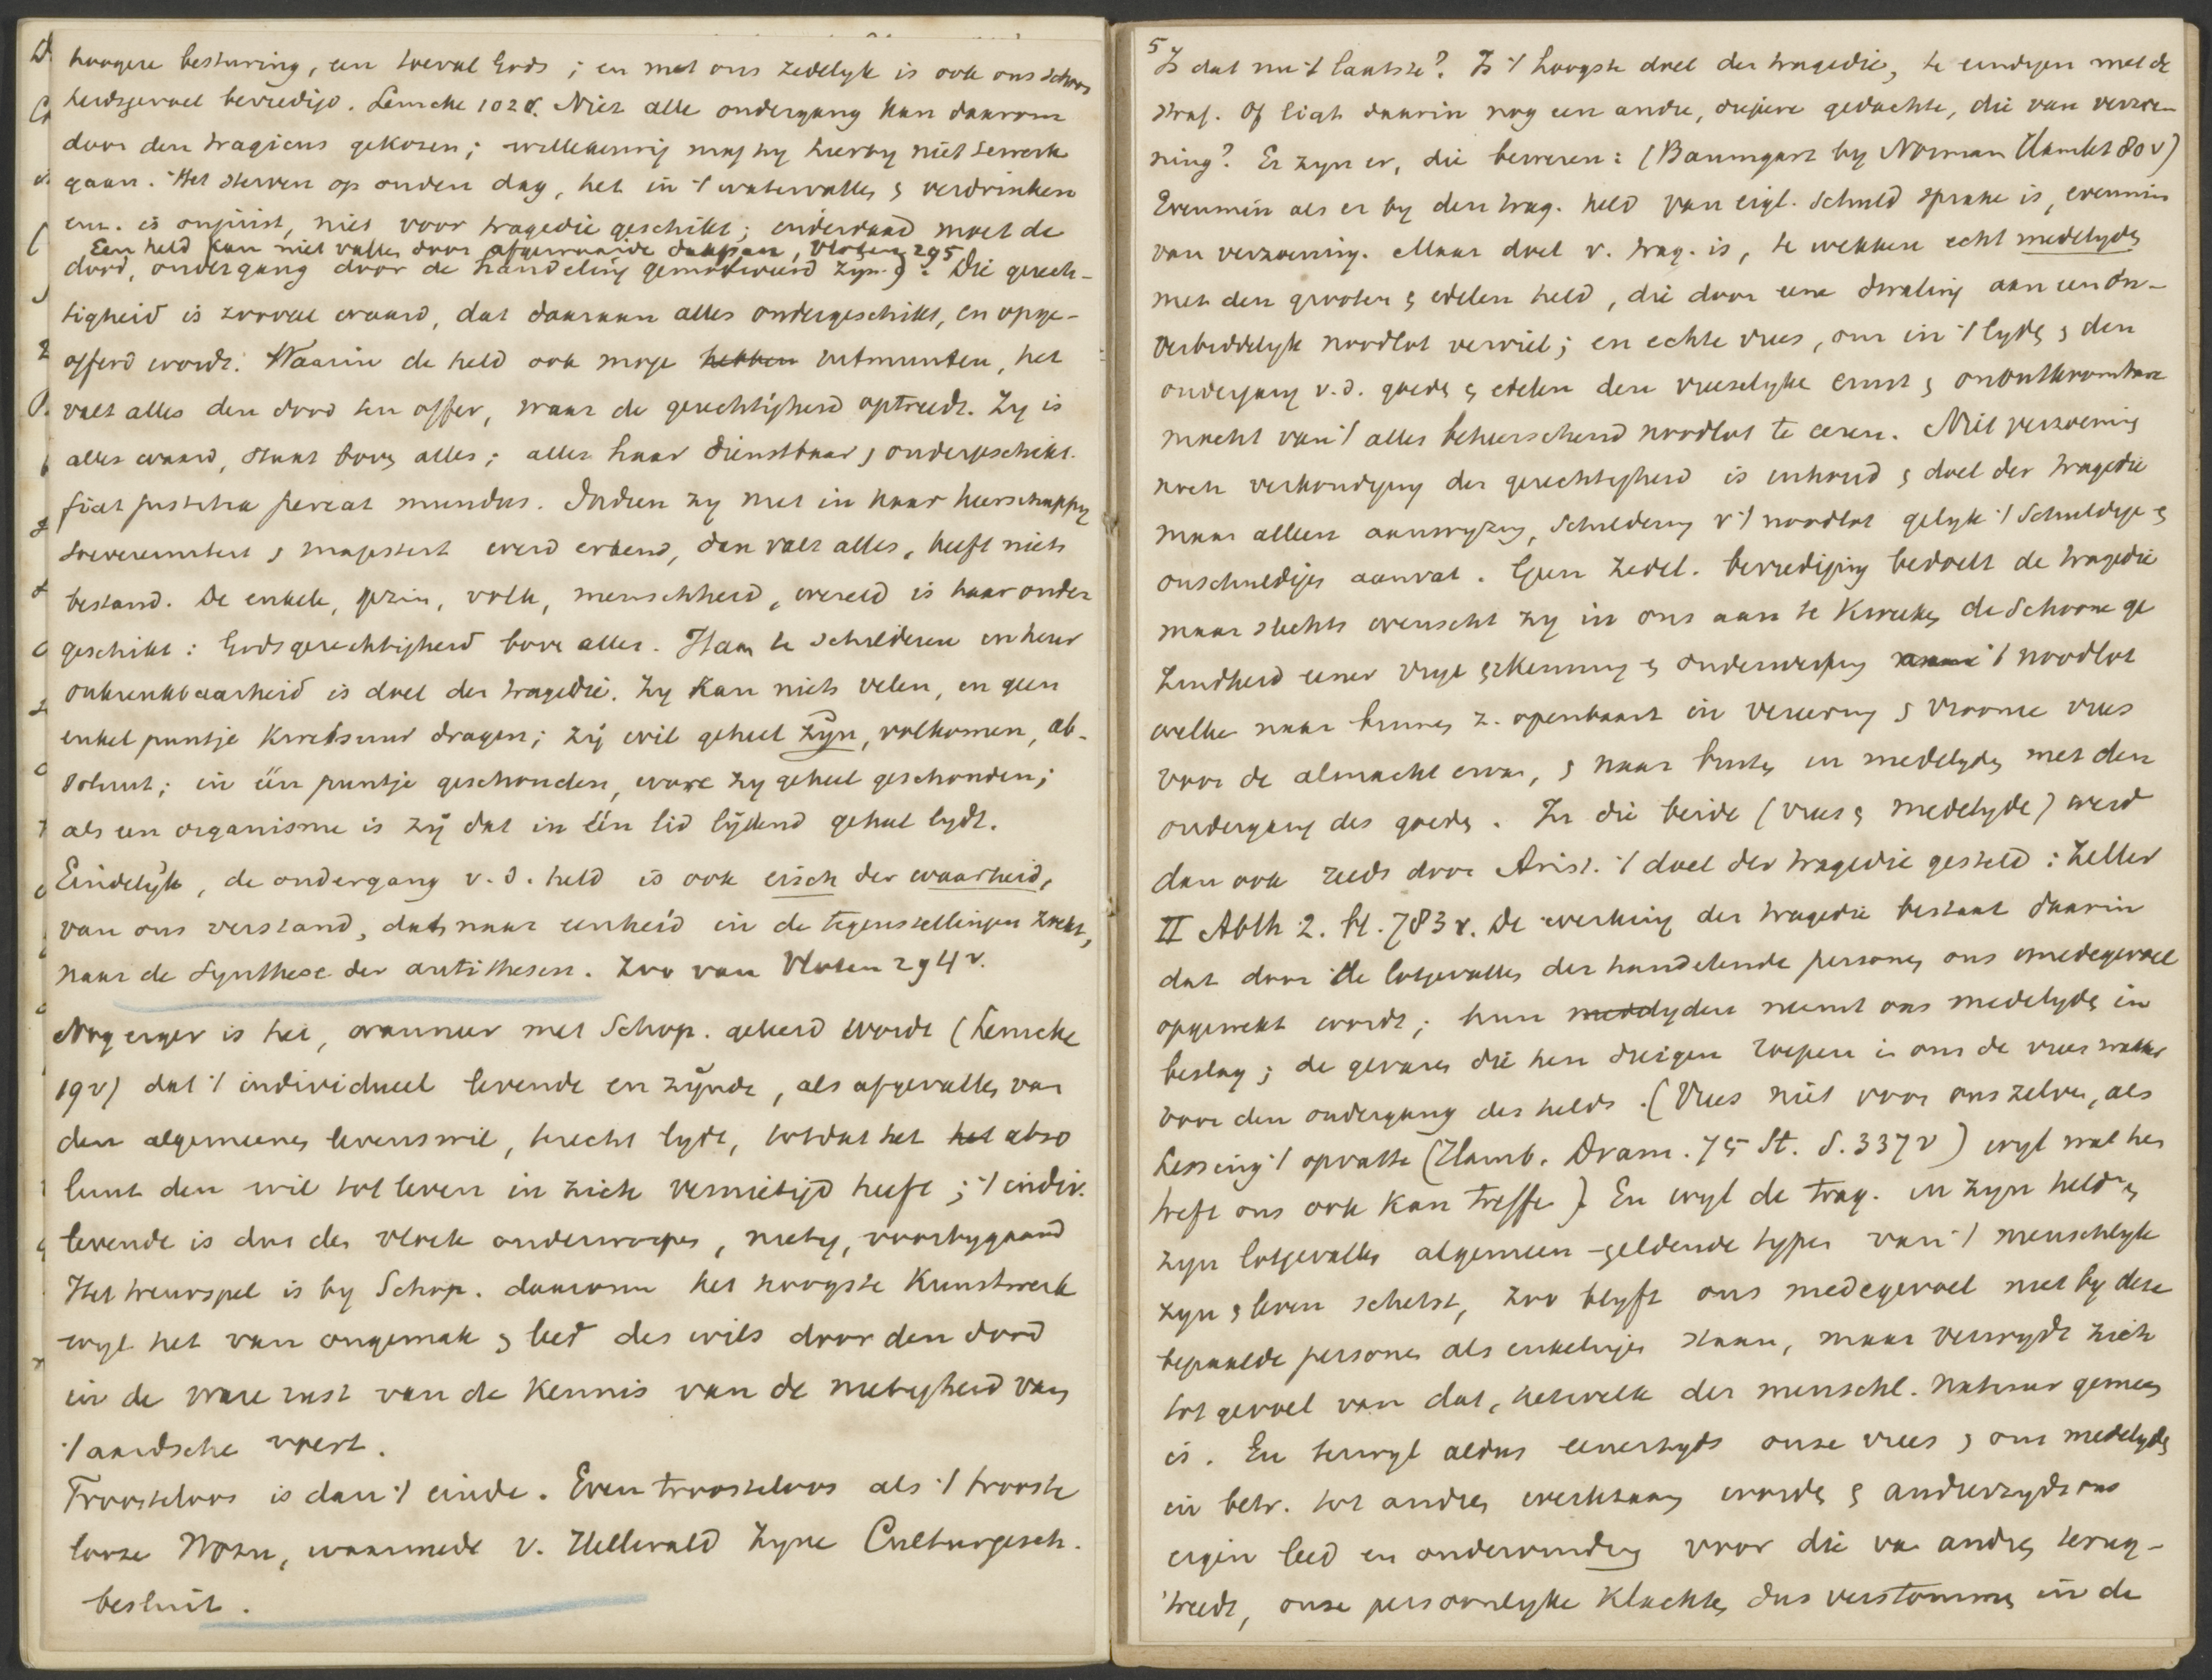 hoogere besturing, een toeval Gods ; en met ons zedelyk is ook ons schoon
heidsgevoel bevredigd. Lemcke 102 v. Niet alle ondergang kan daarom
door den tragicus gekozen; willekeurig mag hy hierby niet te werk
gaan. Het sterven op ouden dag, het in 't water vallen & verdrinken
enz. is onjuist, niet voor tragedie geschikt; inderdaad moet de
Een held kan niet vallen door afgewaaide dakpan, Vloten 295
dood, ondergang door de handeling gemotiveerd zyn.) Die gerech-
tigheid is zooveel waard, dat daaraan alles ondergeschikt, en opge-
offerd wordt. Waarin de held ook moge hebben uitmunten, het
valt alles den dood ten offer, waar de gerechtigheid optreedt. Zy is
alles waard, staat boven alles; alles haar dienstbaar & ondergeschikt.
fiat justitia pereat mundus. Indien zy niet in haar heerschappy
souvereiniteit & majesteit werd erkend, dan valt alles, heeft niets
bestand. De enkele, gezin, volk, menschheid, wereld is haar onder
geschikt: Gods gerechtigheid boven alles. Haar te schilderen in heur
onkrenkbaarheid is doel der tragedie. Zy kan niets velen, en geen
enkel puntje kwetsuur dragen; zy wil geheel zyn, volkomen, ab-
soluut; in één puntje geschonden, ware zy geheel geschonden;
als een organisme is zy dat in één lid lydend geheel lydt.
Eindelyk, de ondergang v. d. held is ook eisch der waarheid,
van ons verstand, dat naar eenheid in de tegenstellingen zoekt,
naar de synthese der antithesen. Zoo van Vloten 294 v.
Nog erger is het, wanneer met Schop. geleerd wordt (Lemcke
19 v) dat 't individueel levende en zynde, als afgevallen van
den algemeenen levenswil, terecht lydt, totdat het het abso
luut den wil tot leven in zich vernietigd heeft ; 't indiv.
levende is dus der vloek onderworpen, nietig, voorbygaand
Het treurspel is by Schop. daarom het hoogste kunstwerk
wyl het van ongemak & leed des wils door den dood
in de ware rust van de kennis van de nietigheid van
't aardsche voert.
Troosteloos is dan 't einde. Even troosteloos als 't trooste
looze Wozu, waarmede v. Hellwald zyne Culturgesch.
besluit.
5
Is dat nu 't laatste? Is 't hoogste doel der tragedie, te eindigen met de
straf. Of ligt daarin nog een andre, diepere gedachte, die van verzoe-
ning? Er zyn er, die beweren: (Baumgart by Norman Hamlet 80 v)
Evenmin als er by den trag. held van eigl. schuld sprake is, evenmin
van verzoening. Maar doel v. trag. is, te wekken echt medelyden
met den grooten & edelen held, die door eene dwaling aan een on-
verbiddelyk noodlot verviel; en echte vrees, om in 't lyden & den
ondergang v. d. goeden & edelen den vreeselyke ernst & onontkoombare
macht van 't alles beheerschend noodlot te eeren. Niet verzoening
noch verkondiging der gerechtigheid is inhoud & doel der tragedie
maar alleen aanwyzing, schildering v 't noodlot gelyk 't schuldigen &
onschuldigen aanvat. Geen zedel. bevrediging bedoelt de tragedie
maar slechts wenscht zy in ons aan te kweeken de schoone ge
zindheid eener vrye erkenning & onderwerping aan 't noodlot
welke naar binnen z. openbaart in vereering & vroome vrees
voor de almacht ervan, & naar buiten in medelyden met den
ondergang des goeden. In die beide (vrees & medelyde) werd
dan ook reeds door Arist. 't doel der tragedie gesteld: Zeller
II Abth 2. bl. 783 v. De werking der tragedie bestaat daarin
dat door de lotgevallen der handelende personen ons medegevoel
opgewekt wordt; hun medelyden neemt ons medelyden in
beslag; de gevaren die hen dreigen roepen in ons de vrees wakker
voor den ondergang des helds. (Vrees niet voor ons zelven, als
Lessing 't opvatte (Hamb. Dram. 75 St. S. 337 v) wyl wat hen
treft ons ook kan treffen). En wyl de trag. in zyn helden &
zyn lotgevallen algemeen-geldende typen van 't menschlyk
zyn & leven schetst, zoo blyft ons medegevoel niet by deze
bepaalde personen als enkelingen staan, maar verwydt zich
tot gevoel van dat, hetwelk der menschl. natuur gemeen
is. En terwyl aldus eenerzyds onze vrees & ons medelyden
in betr. tot andren werkzaam worden & anderzyds ons
eigen leed en ondervinding voor die van andren terug-
treedt, onze persoonlyke klachten dus verstommen in de